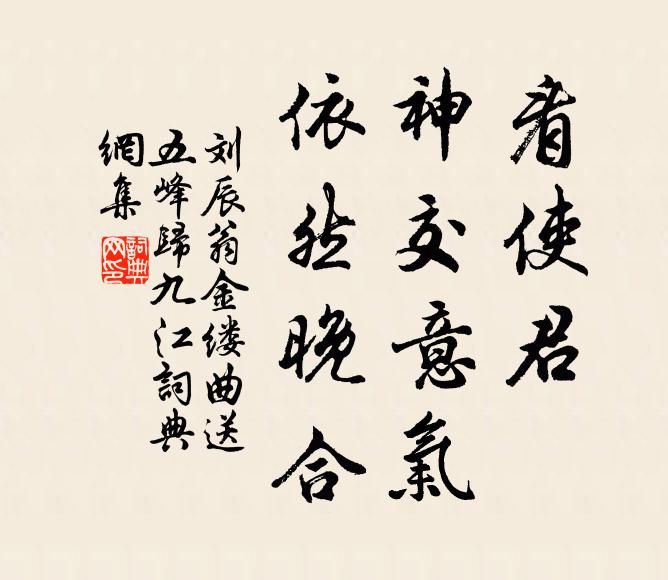 看使君
神交意氣
依然晚合
刘辰翁金缕曲送
五峰歸九江詞典
網集
詞典
网印